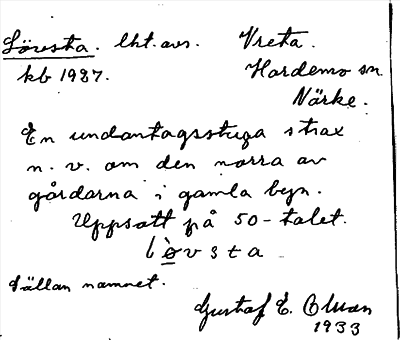 Lövsta. lht. avs. Vreta.
kb 1987. Hardemo sn.
Närke.
En undantagsstuga strax
n. v. om den norra av
gårdarna i gamla byn.
Uppsatt på 50-talet.
lòvsta
Sällan namnet.
Gustaf E. Olsson
1933